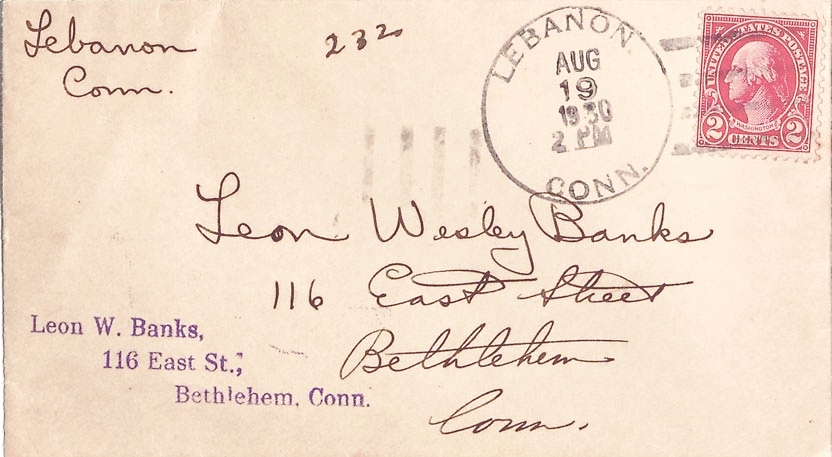 Lebanon
Conn.
232
LEBANON.
AUG
19
1930
2 PM
CONN.
UNITED STATES POSTAGE
WASHINGTON
2 CENTS 2
Leon Wesley Banks
116 East Street
Bethlehem
Conn.
Leon W. Banks,
116 East St.,
Bethlehem, Conn.